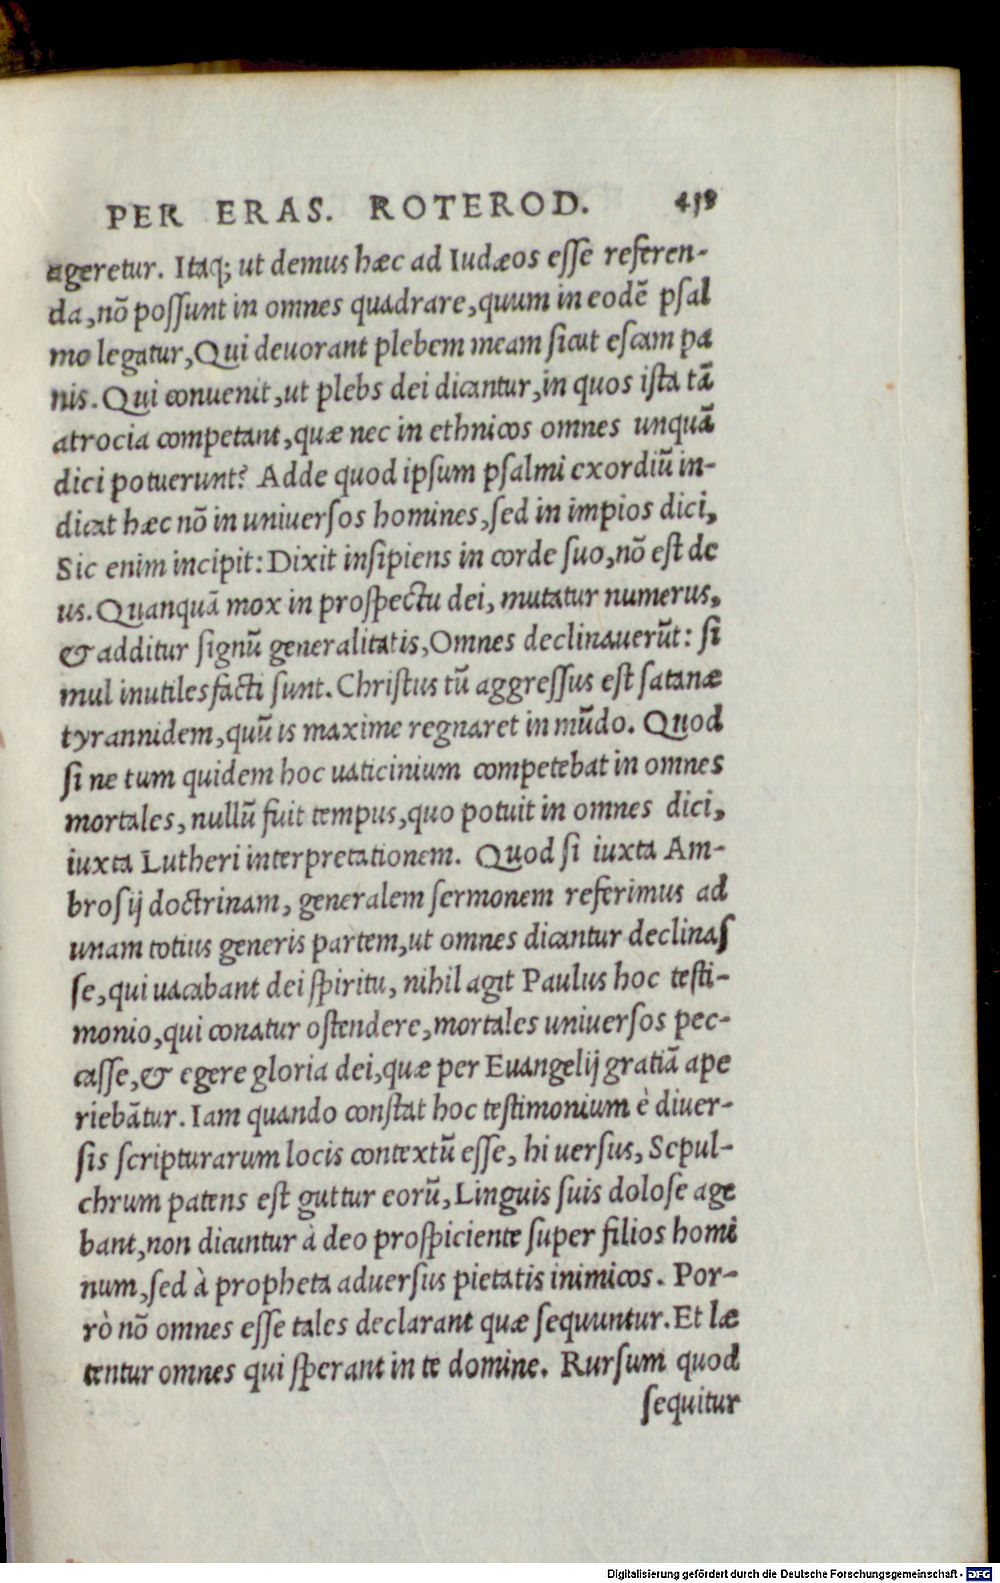 PER ERAS. ROTEROD. 418
ageretur. Itaq; ut demus hæc ad Iudæos esse referen-
da, nō possunt in omnes quadrare, quum in eodē psal
mo legatur, Qui deuorant plebem meam sicut escam pa
nis. Qui conuenit, ut plebs dei dicantur, in quos ista tā
atrocia competant, quæ nec in ethnicos omnes unquā
dici potuerunt? Adde quod ipsum psalmi exordiū in-
dicat hæc nō in uniuersos homines, sed in impios dici,
Sic enim incipit: Dixit insipiens in corde suo, nō est de
us. Quanquā mox in prospectu dei, mutatur numerus,
& additur signū generalitatis, Omnes declinauerūt: si
mul inutiles facti sunt. Christus tū aggressus est satanæ
tyrannidem, quū is maxime regnaret in mūdo. Quod
si ne tum quidem hoc uaticinium competebat in omnes
mortales, nullū fuit tempus, quo potuit in omnes dici,
iuxta Lutheri interpretationem. Quod si iuxta Am-
brosij doctrinam, generalem sermonem referimus ad
unam totius generis partem, ut omnes dicantur declinas
se, qui uacabant dei spiritu, nihil agit Paulus hoc testi-
monio, qui conatur ostendere, mortales uniuersos pec-
casse, & egere gloria dei, quæ per Euangelij gratiā ape
riebātur. Iam quando constat hoc testimonium è diuer-
sis scripturarum locis contextū esse, hi uersus, Sepul-
chrum patens est guttur eorū, Linguis suis dolose age
bant, non dicuntur à deo prospiciente super filios homi
num, sed à propheta aduersus pietatis inimicos. Por-
rò nō omnes esse tales declarant quæ sequuntur. Et læ
tentur omnes qui sperant in te domine. Rursum quod
sequitur
Digitalisierung gefördert durch die Deutsche Forschungsgemeinschaft - DFG